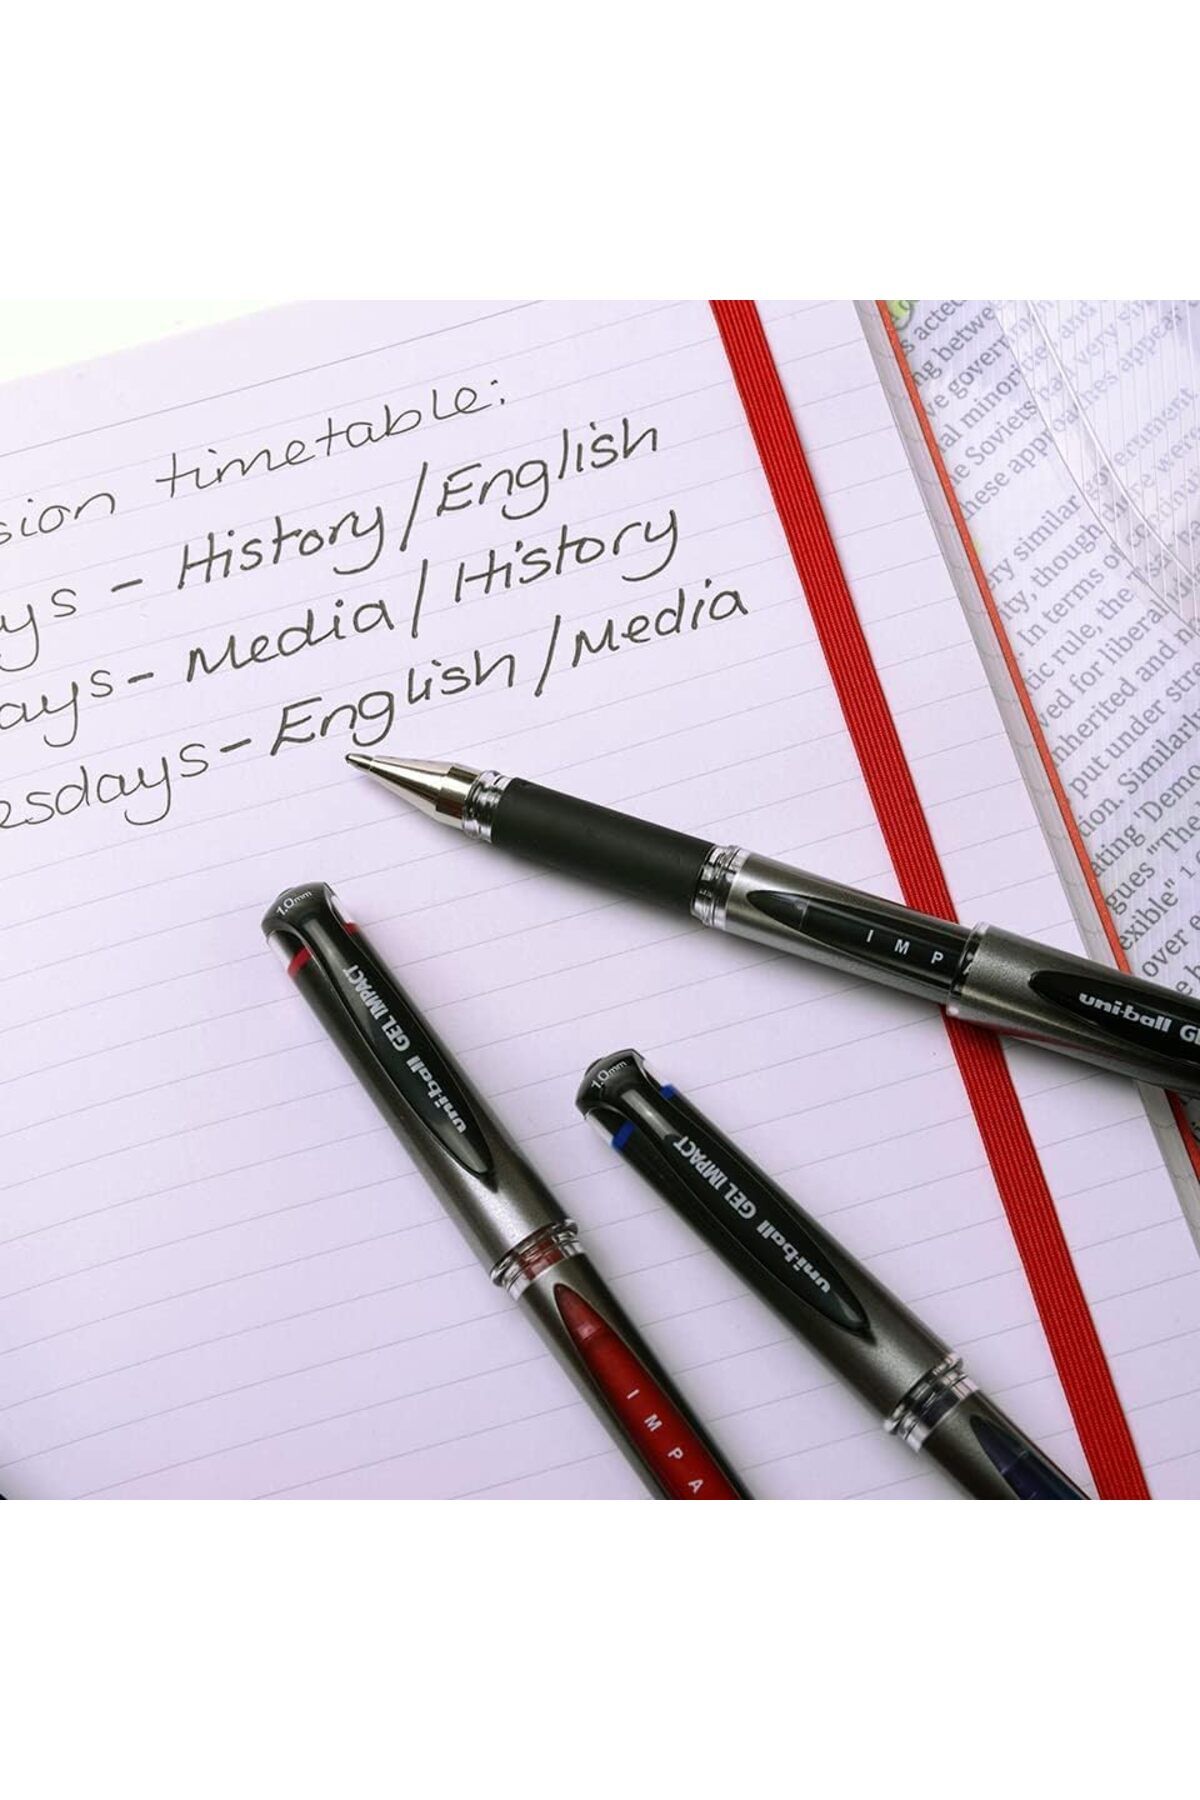 sion timetable:
ys - History/English
ays - Media/History
esdays - English/Media
IMP
uni-ball GE
1.0mm
uni-ball GEL IMPACT
IMPA
1.0mm
uni-ball GEL IMPACT
s acted
ng betwe
ve govern
al minorities and
he Soviets had very
these approaches appea
ery similar government
ity, though
. In terms of
tic rule, the
ved for liberal
inherited and n
put under str
tion. Similarly
ating 'Demo
gues "The
exible" 1
over e